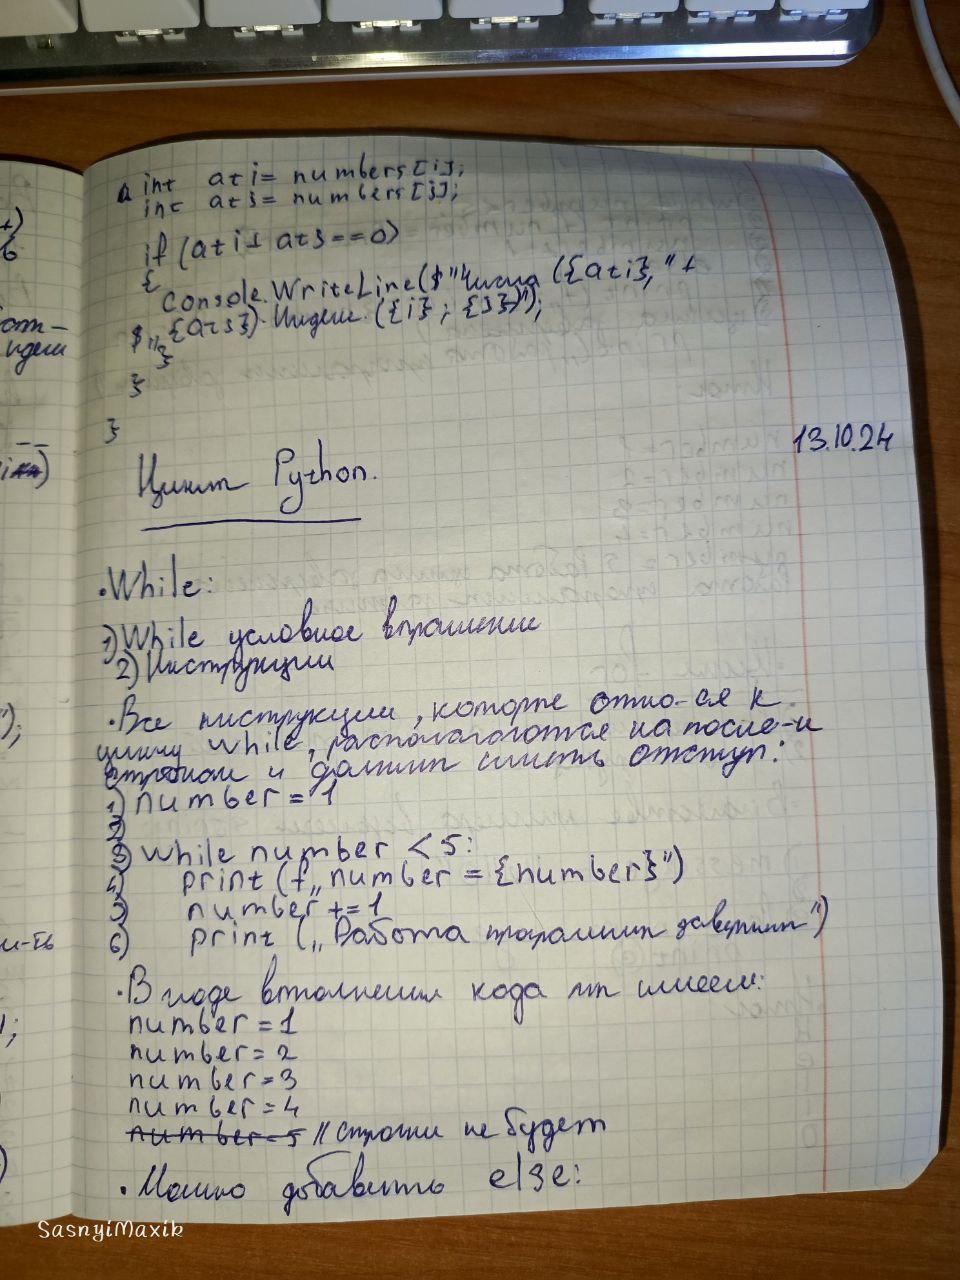 int ati = numbers[i];
int atj = numbers[j];
if (ati + atj == 0)
{
Console.WriteLine($"Числа ({ati}," +
$"{atj}). Индекс ({i} ; {j})");
}
}
}
13.10.24
Циклы Python.
• While:
1) While условное выражение
2) Инструкции
• Все инструкции, которые отно-ся к
циклу while, располагаются на после-и
строках и должны иметь отступ:
1) number = 1
2)
3) while number < 5:
4) print (f„number = {number}")
5) number += 1
6) print („Работа программы завершит")
• В ходе выполнения кода мы имеем:
number = 1
number = 2
number = 3
number = 4
number = 5 // строки не будет
• Можно добавить else:
SasnyiMaxik